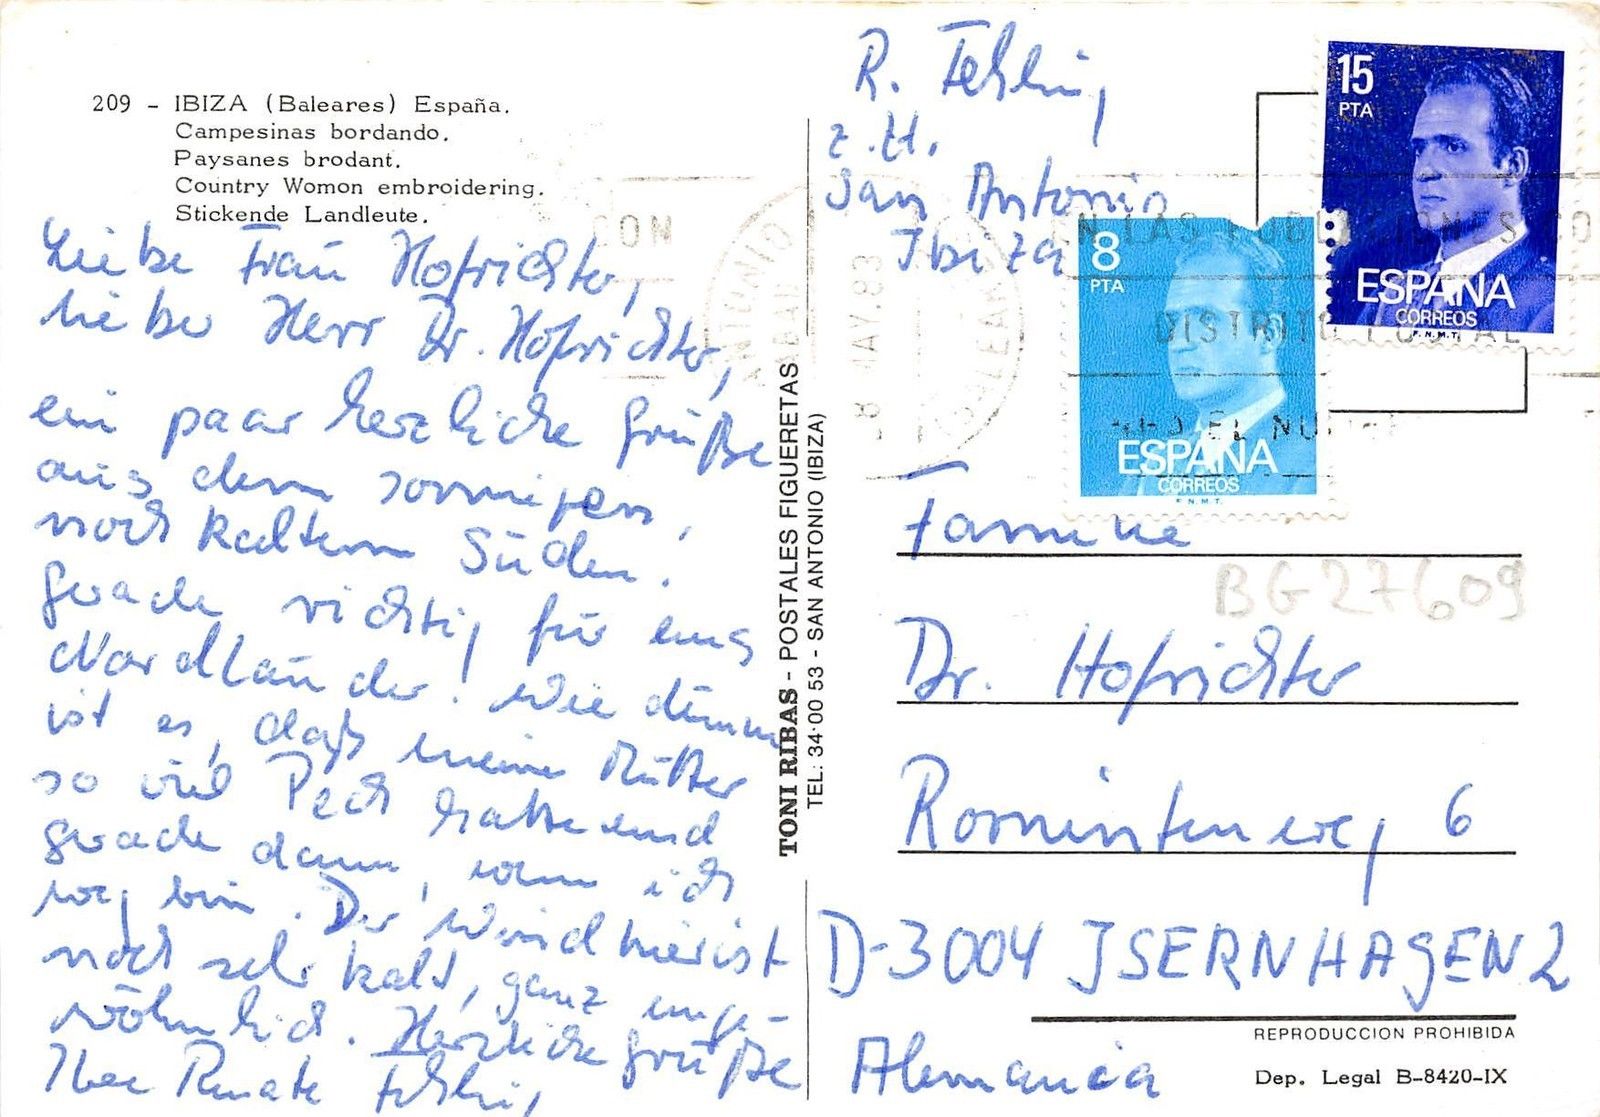 209 - IBIZA (Baleares) España.
Campesinas bordando.
Paysanes brodant.
Country Womon embroidering.
Stickende Landleute.
Liebe Frau Hofrichter,
lieber Herr Dr. Hofrichter,
ein paar herzliche Grüße
aus dem sonnigen,
noch kaltem Süden.
Gerade richtig für uns
Nordländer! Wie dumm
ist es, daß meine Mutter
so viel Pech hatte und
gerade dann, wenn ich
weg bin. Der Wind hier ist
noch sehr kalt, ganz unge-
wöhnlich. Herzliche Grüße
Ihre Renate Fehling
TONI RIBAS - POSTALES FIGUERETAS
TEL: 34·00 53 - SAN ANTONIO (IBIZA)
R. Fehling
z. Zt.
San Antonio
Ibiza
15
PTA
ESPAÑA
CORREOS
F.N.M.T.
8
PTA
ESPAÑA
CORREOS
F.N.M.T.
CON
ANTONIO ABAD
8 MAY. 83
(BALEARES)
EN LAS POBLACIONES CO
DISTRITO POSTAL
EL
Familie
BG27609
Dr. Hofrichter
Rominteweg 6
D-3004 ISERNHAGEN 2
Alemania
REPRODUCCION PROHIBIDA
Dep. Legal B-8420-IX